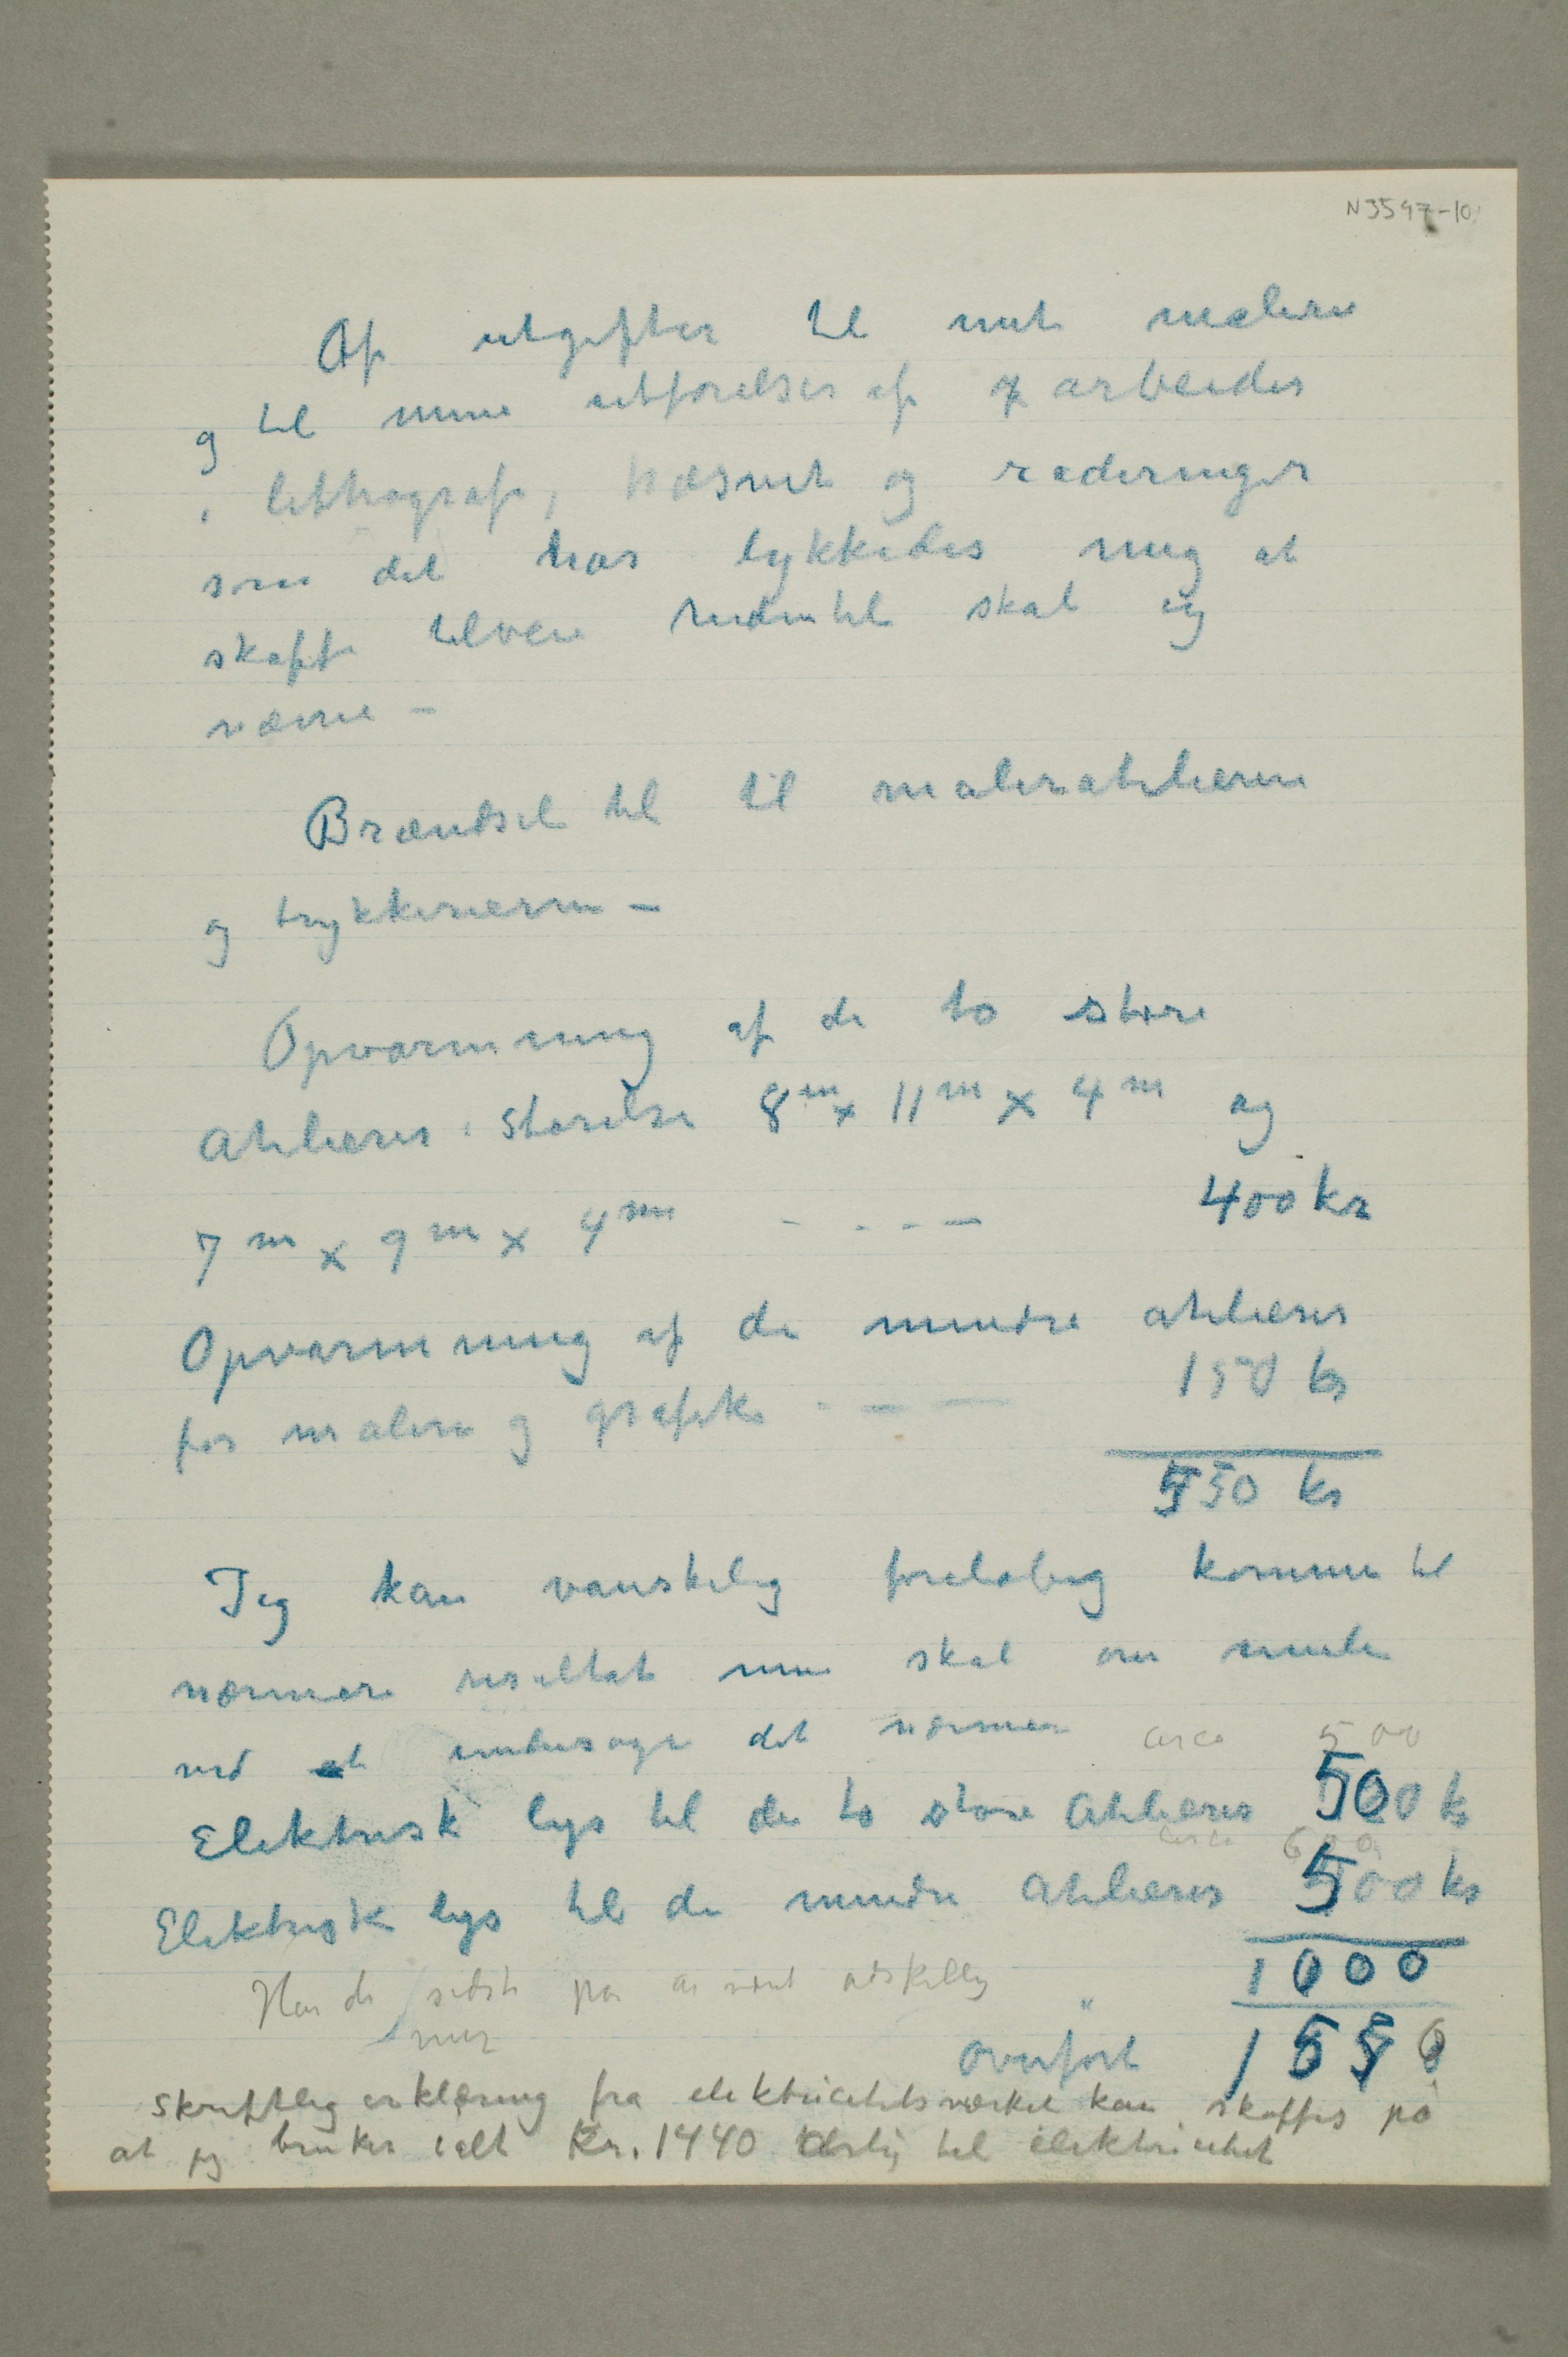 N 3547-10
Af utgifter til mit maleri
og til mine utførelser af arbeider
i lithografi, træsnit og raderinger
som det har lykkedes mig at
skaffe tilveie skal jeg
nævne –
Brændsel til til maleratelierene
og trykkerierne –
Opvarmning af de to store
Atelierer i Størelse 8 m x 11 m x 4 m og
7 m x 9 m x 4 m - - - – 400 kr
Opvarmning af de mindre atelierer
for maleri og grafik - – — 150 kr
550 kr
Jeg kan vanskelig foreløbig komme til
nærmere resultat men skal om
ved at undersøge det nærmere circa 500
Elektrisk lys til de to store Atelierer 500 kr
circa 600
Elektrisk lys til de mindre Atelierer 500 kr
1000
Har de sidste par år været adskillig "
mer
Overført 1550
Skriftlig erklæring fra elektricitetsværket kan skaffes på
at jeg bruker ialt Kr. 1440 årlig til elektricitet